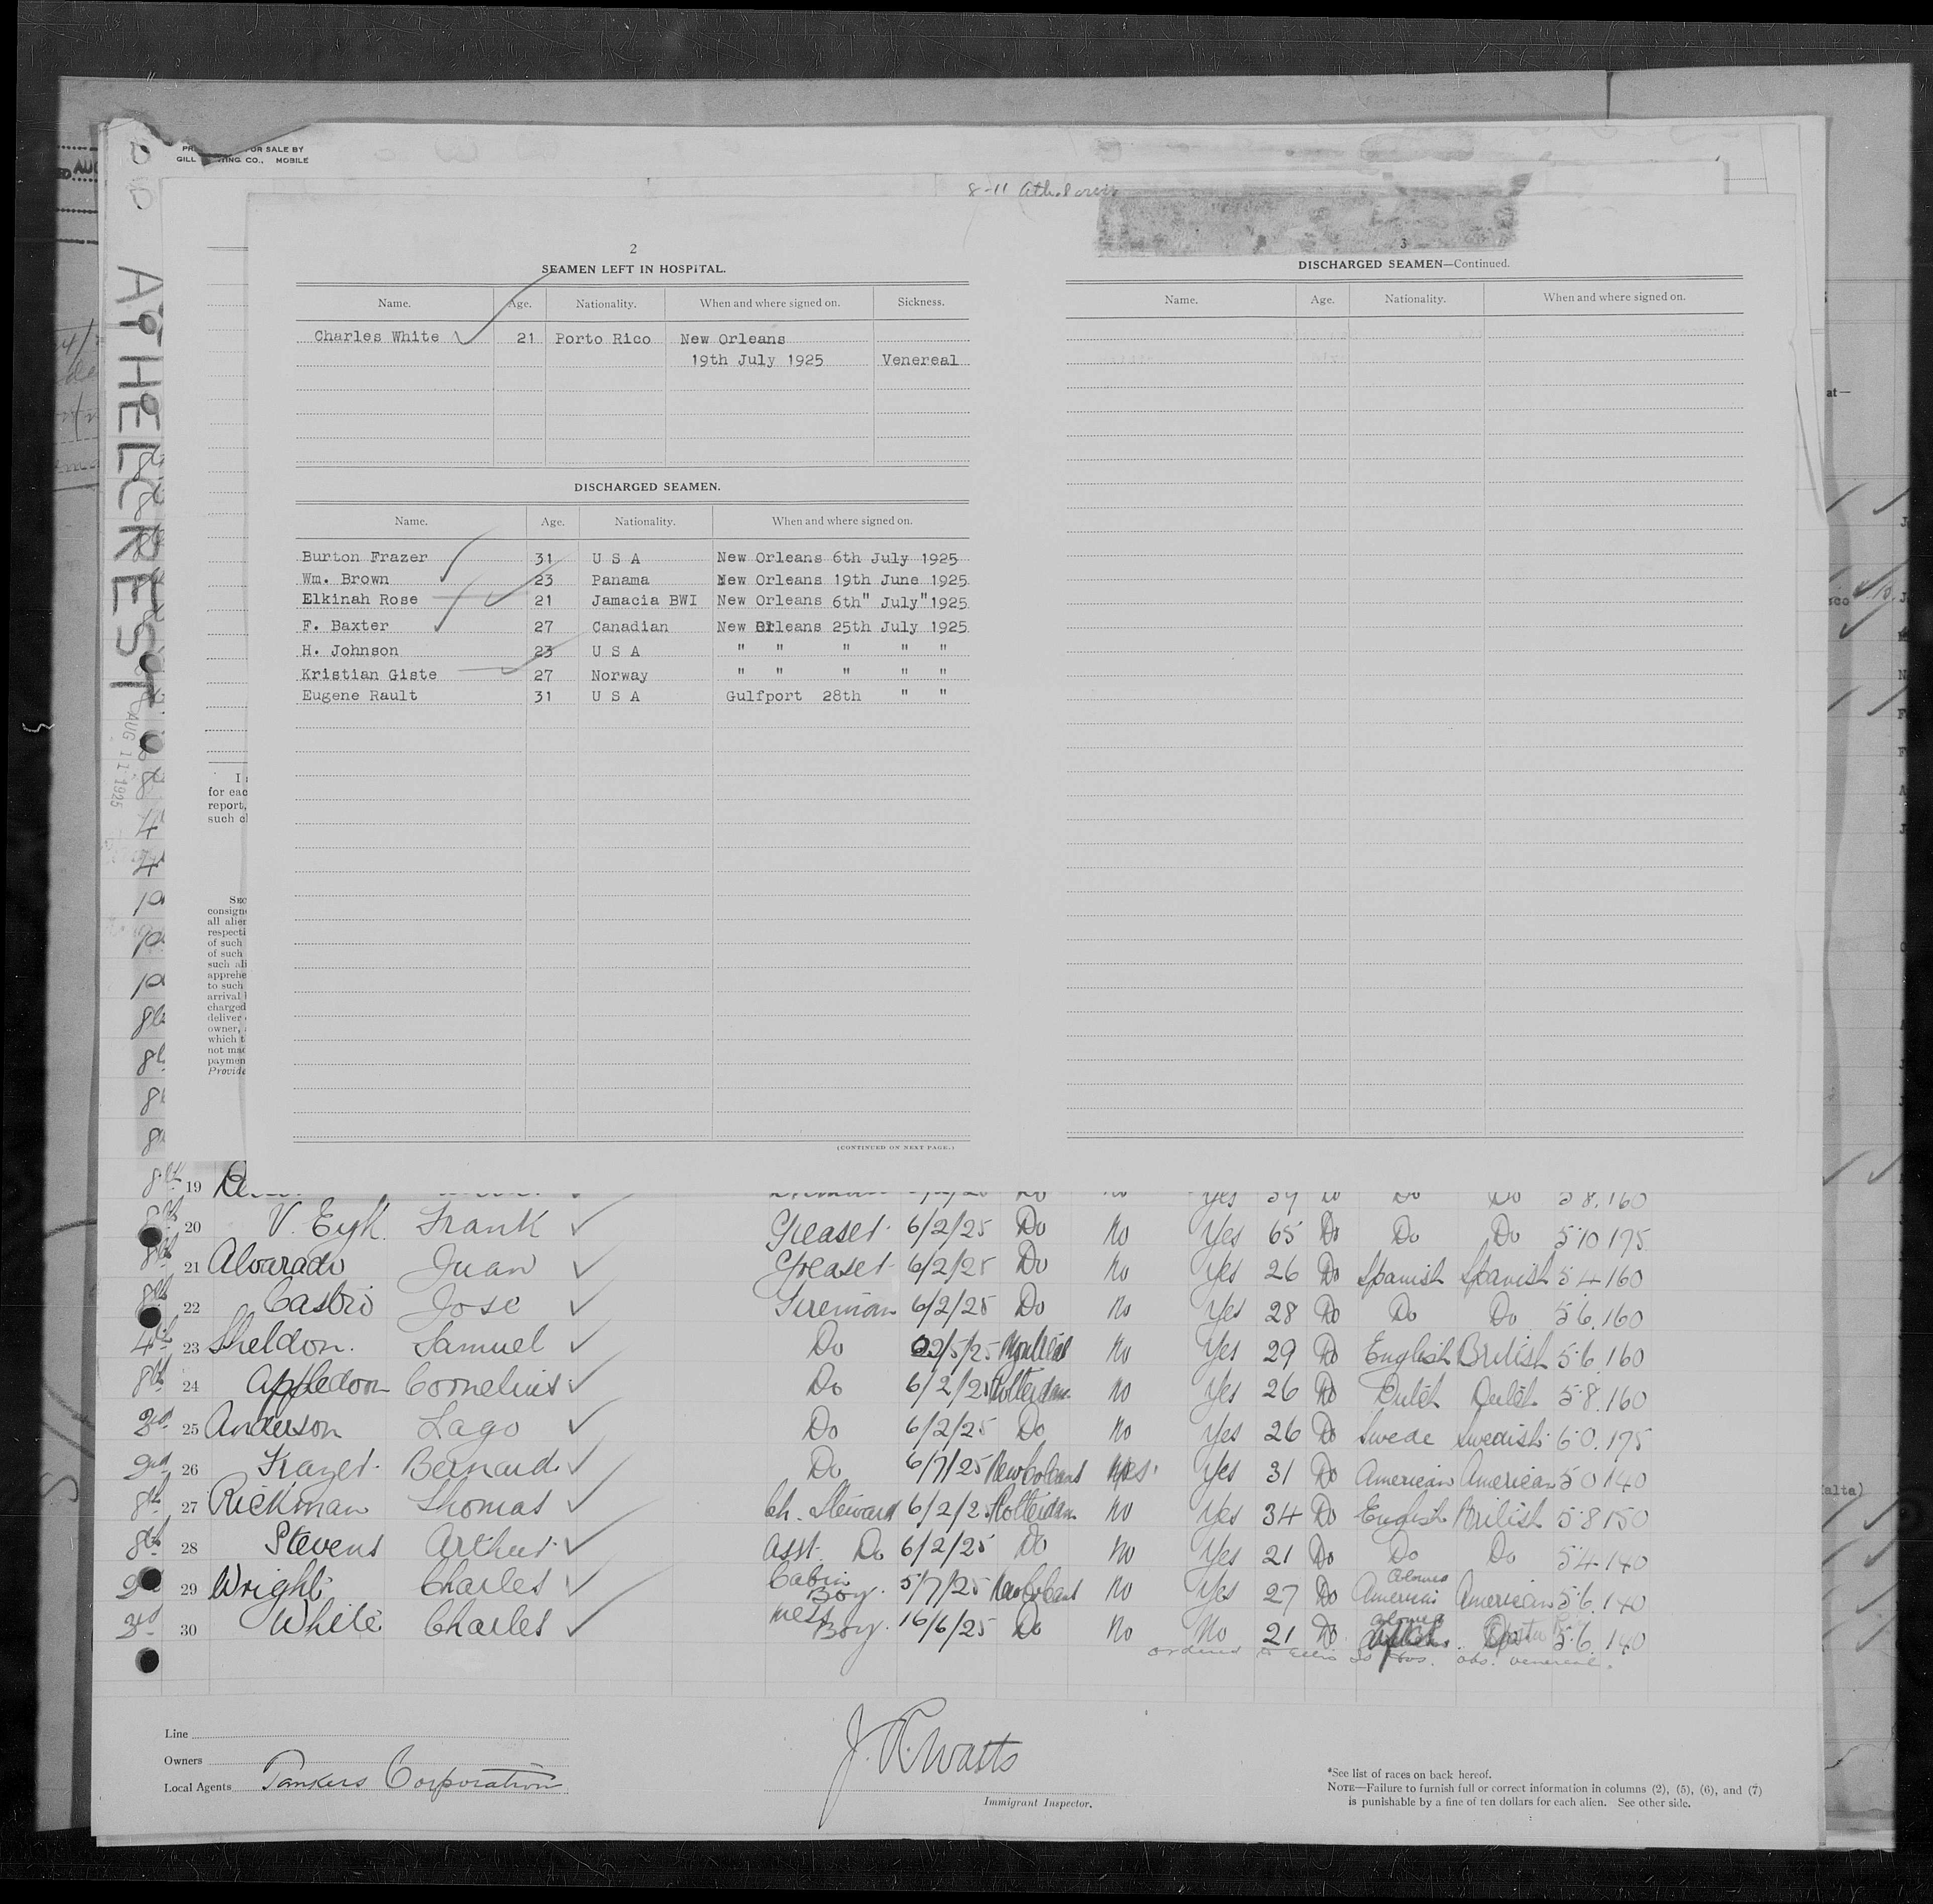 OR SALE BY
GILL
ING CO., MOBILE
8-11
ATHELCREST
AUG 11 1925
2
SEAMEN LEFT IN HOSPITAL.
Name. Age. Nationality. When and where signed on. Sickness.
Charles White 21 Porto Rico New Orleans
19th July 1925 Venereal
DISCHARGED SEAMEN.
Name. Age. Nationality. When and where signed on.
Burton Frazer 31 U S A New Orleans 6th July 1925
Wm. Brown 23 Panama New Orleans 19th June 1925
Elkinah Rose 21 Jamacia BWI New Orleans 6th" July" 1925
F. Baxter 27 Canadian New Orleans 25th July 1925
H. Johnson 23 U S A " " " " "
Kristian Giste 27 Norway " " " " "
Eugene Rault 31 U S A Gulfport 28th " "
(CONTINUED ON NEXT PAGE.)
3
DISCHARGED SEAMEN—Continued.
Name. Age. Nationality. When and where signed on.
for eac
report,
such cl
SEC
consign
all alien
respecti
of such
of such
such ali
apprehe
to such
arrival
charged
deliver
owner,
which t
not mad
payment
Provide
8th 19 Yes 39 Do Do Do 5 8. 160
8th 20 V. Eyk. Frank Greaser 6/2/25 Do No Yes 65 Do Do Do 5 10 175
8th 21 Alvarado Juan Greaser 6/2/25 Do No Yes 26 Do Spanish Spanish 5 4 160
8th 22 Castro Jose Fireman 6/2/25 Do No Yes 28 Do Do Do 5 6. 160
4th 23 Sheldon. Samuel Do /5/25 Montreal No Yes 29 Do English British 5 6. 160
8th 24 Appledorn Cornelius Do 6/2/25 Rotterdam No Yes 26 Do Dutch Dutch 5 8. 160
3rd 25 Anderson Lago Do 6/2/25 Do No Yes 26 Do Swede Swedish 6 0. 175
2nd 26 Frazer Bernard Do 6/7/25 New Orleans Yes 31 Do American American 5 0 140
8th 27 Rickman Thomas Ch. Steward 6/2/25 Rotterdam No Yes 34 Do English British 5 8 150
8th 28 Stevens Arthur Asst. Do 6/2/25 Do No Yes 21 Do Do Do 5 4 140
29 Wright Charles Cabin Boy. 5/7/25 New Orleans No Yes 27 Do American American 5 6. 140
3rd 30 White Charles Mess Boy. 16/6/25 Do No No 21 Do 5 6. 140
ordered to Ellis Is obs. venereal.
Line
Owners
Local Agents Tankers Corporation
J. R. Watts
Immigrant Inspector.
*See list of races on back hereof.
NOTE—Failure to furnish full or correct information in columns (2), (5), (6), and (7)
is punishable by a fine of ten dollars for each alien. See other side.